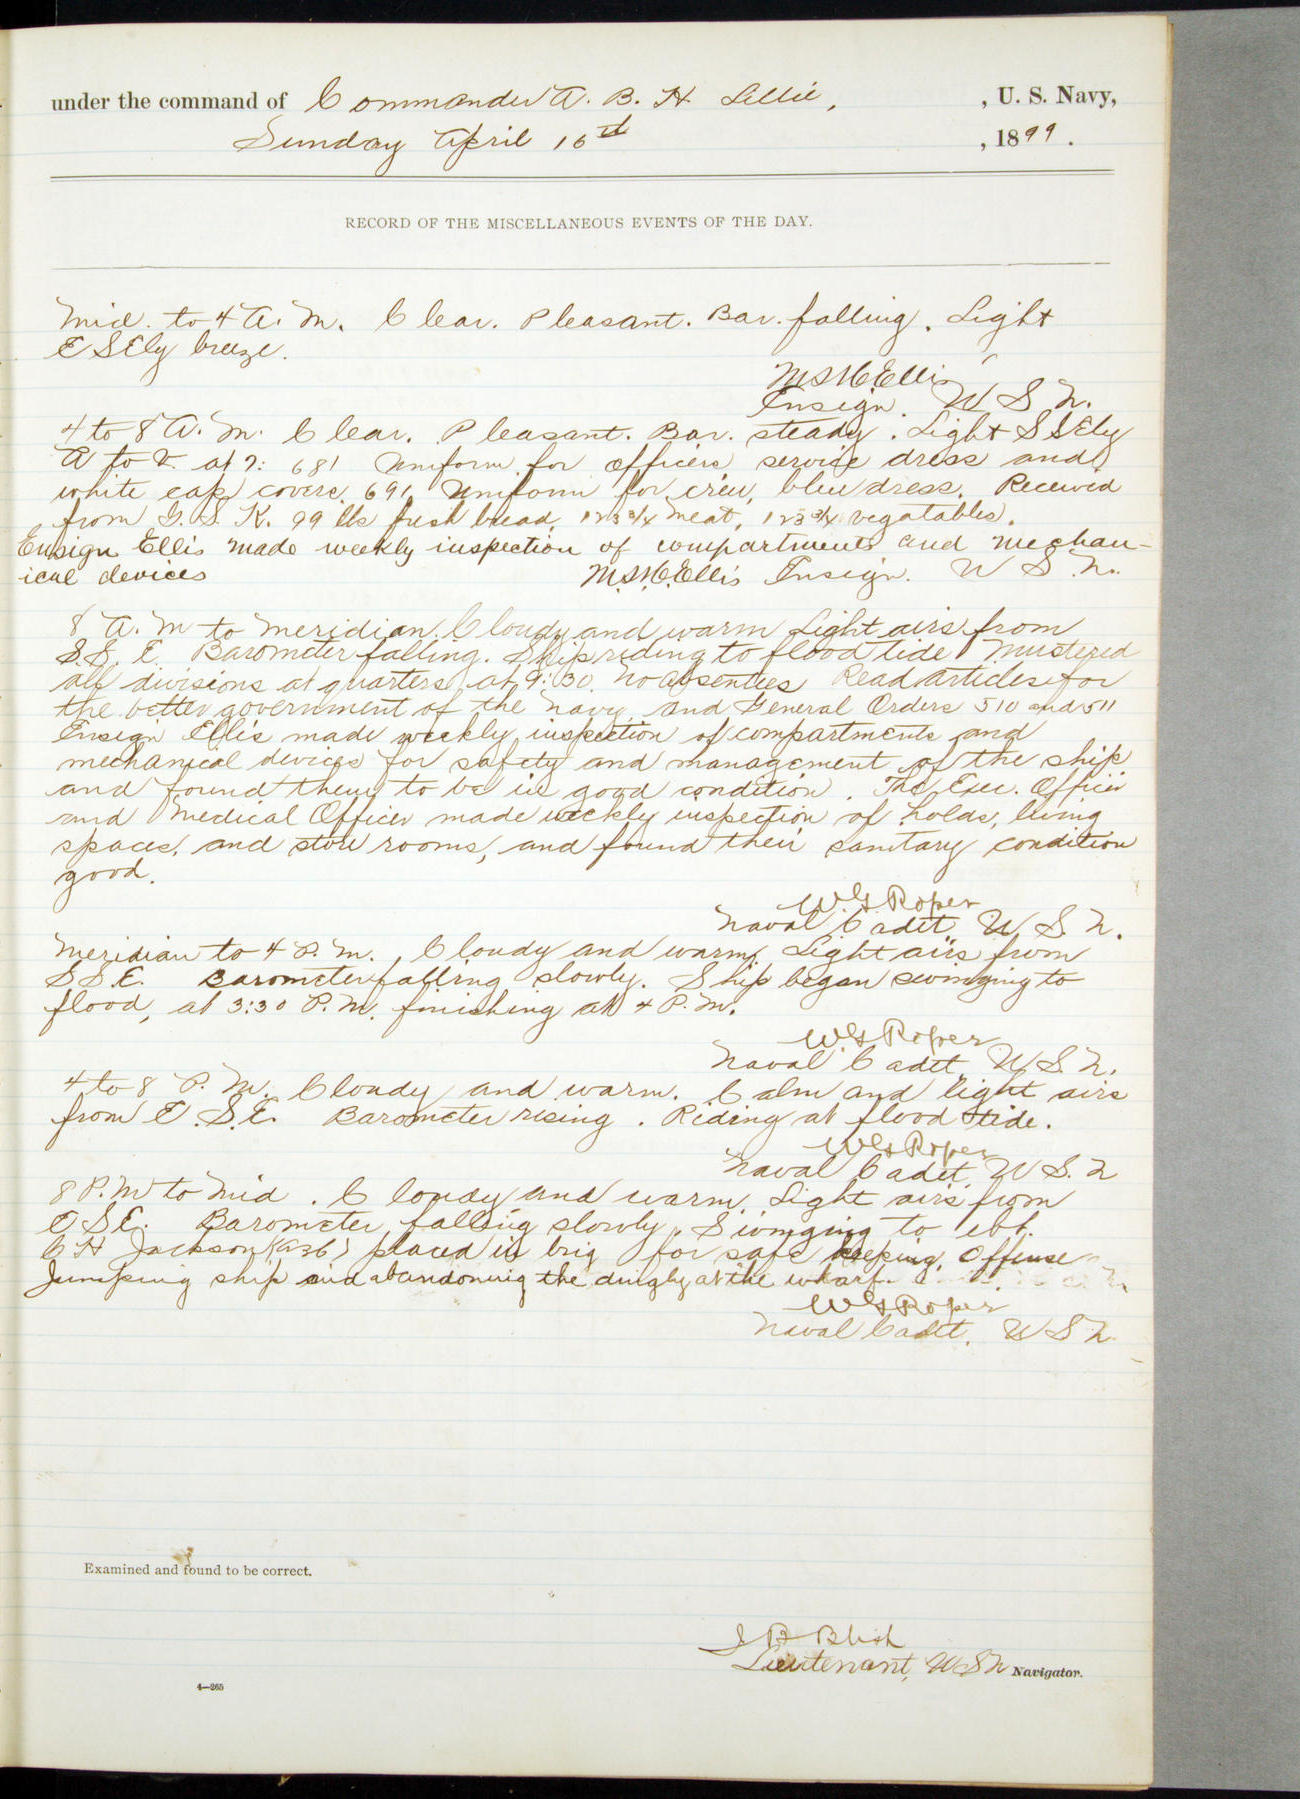 under the command of Commander A. B. H. Lillie, , U. S. Navy,
Sunday April 16th , 1899.
RECORD OF THE MISCELLANEOUS EVENTS OF THE DAY.
Mid. to 4 A. M. Clear. Pleasant. Bar. falling. Light
ESEly breeze.
Ellis
Ensign. U S N.
4 to 8 A. M. Clear. Pleasant. Bar. steady. Light SSEly
A to V. at 7: 681 Uniform for officers service dress and
white cap covers. 691 Uniform for crew, blue dress. Received
from G. S. K. 99 lbs fresh bread, 123 3/4 meat, 123 3/4 vegatables.
Ensign Ellis made weekly inspection of compartments and mechan-
ical devices M.S.H.Ellis Ensign. U S N.
8 A. M to Meridian. Cloudy and warm Light airs from
S.S. E. Barometer falling. Ship riding to flood tide Mustered
all divisions at quarters at 9:30. No absentees Read articles for
the better government of the navy and General Orders 510 and 511
Ensign Ellis made weekly inspection of compartments and
mechanical devices for safety and management of the ship
and found them to be in good condition. The Exec. Officer
and Medical Officer made weekly inspection of holds, living
spaces, and store rooms, and found their sanitary condition
good.
W G Roper
Naval Cadet, U. S. N.
Meridian to 4 P. M., Cloudy and warm. Light airs from
S S E. Barometer falling slowly. Ship began swinging to
flood, at 3:30 P. M. finishing at 4 P. M.
W G Roper
Naval Cadet, U. S. N.
4 to 8 P. M. Cloudy and warm. Calm and light airs
from E. S.E. Barometer rising. Riding at flood tide.
W G Roper
Naval Cadet, U S. N
8 P. M to Mid. Cloudy and warm. Light airs from
E S E. Barometer falling slowly. Swinging to ebb.
C H Jackson placed in brig for safe keeping. Offense
Jumping ship and abandoning the dinghy at the wharf.
W G Roper
Naval Cadet. U S N.
Examined and found to be correct.
J B Blish
Lieutenant, U S N Navigator.
4—265